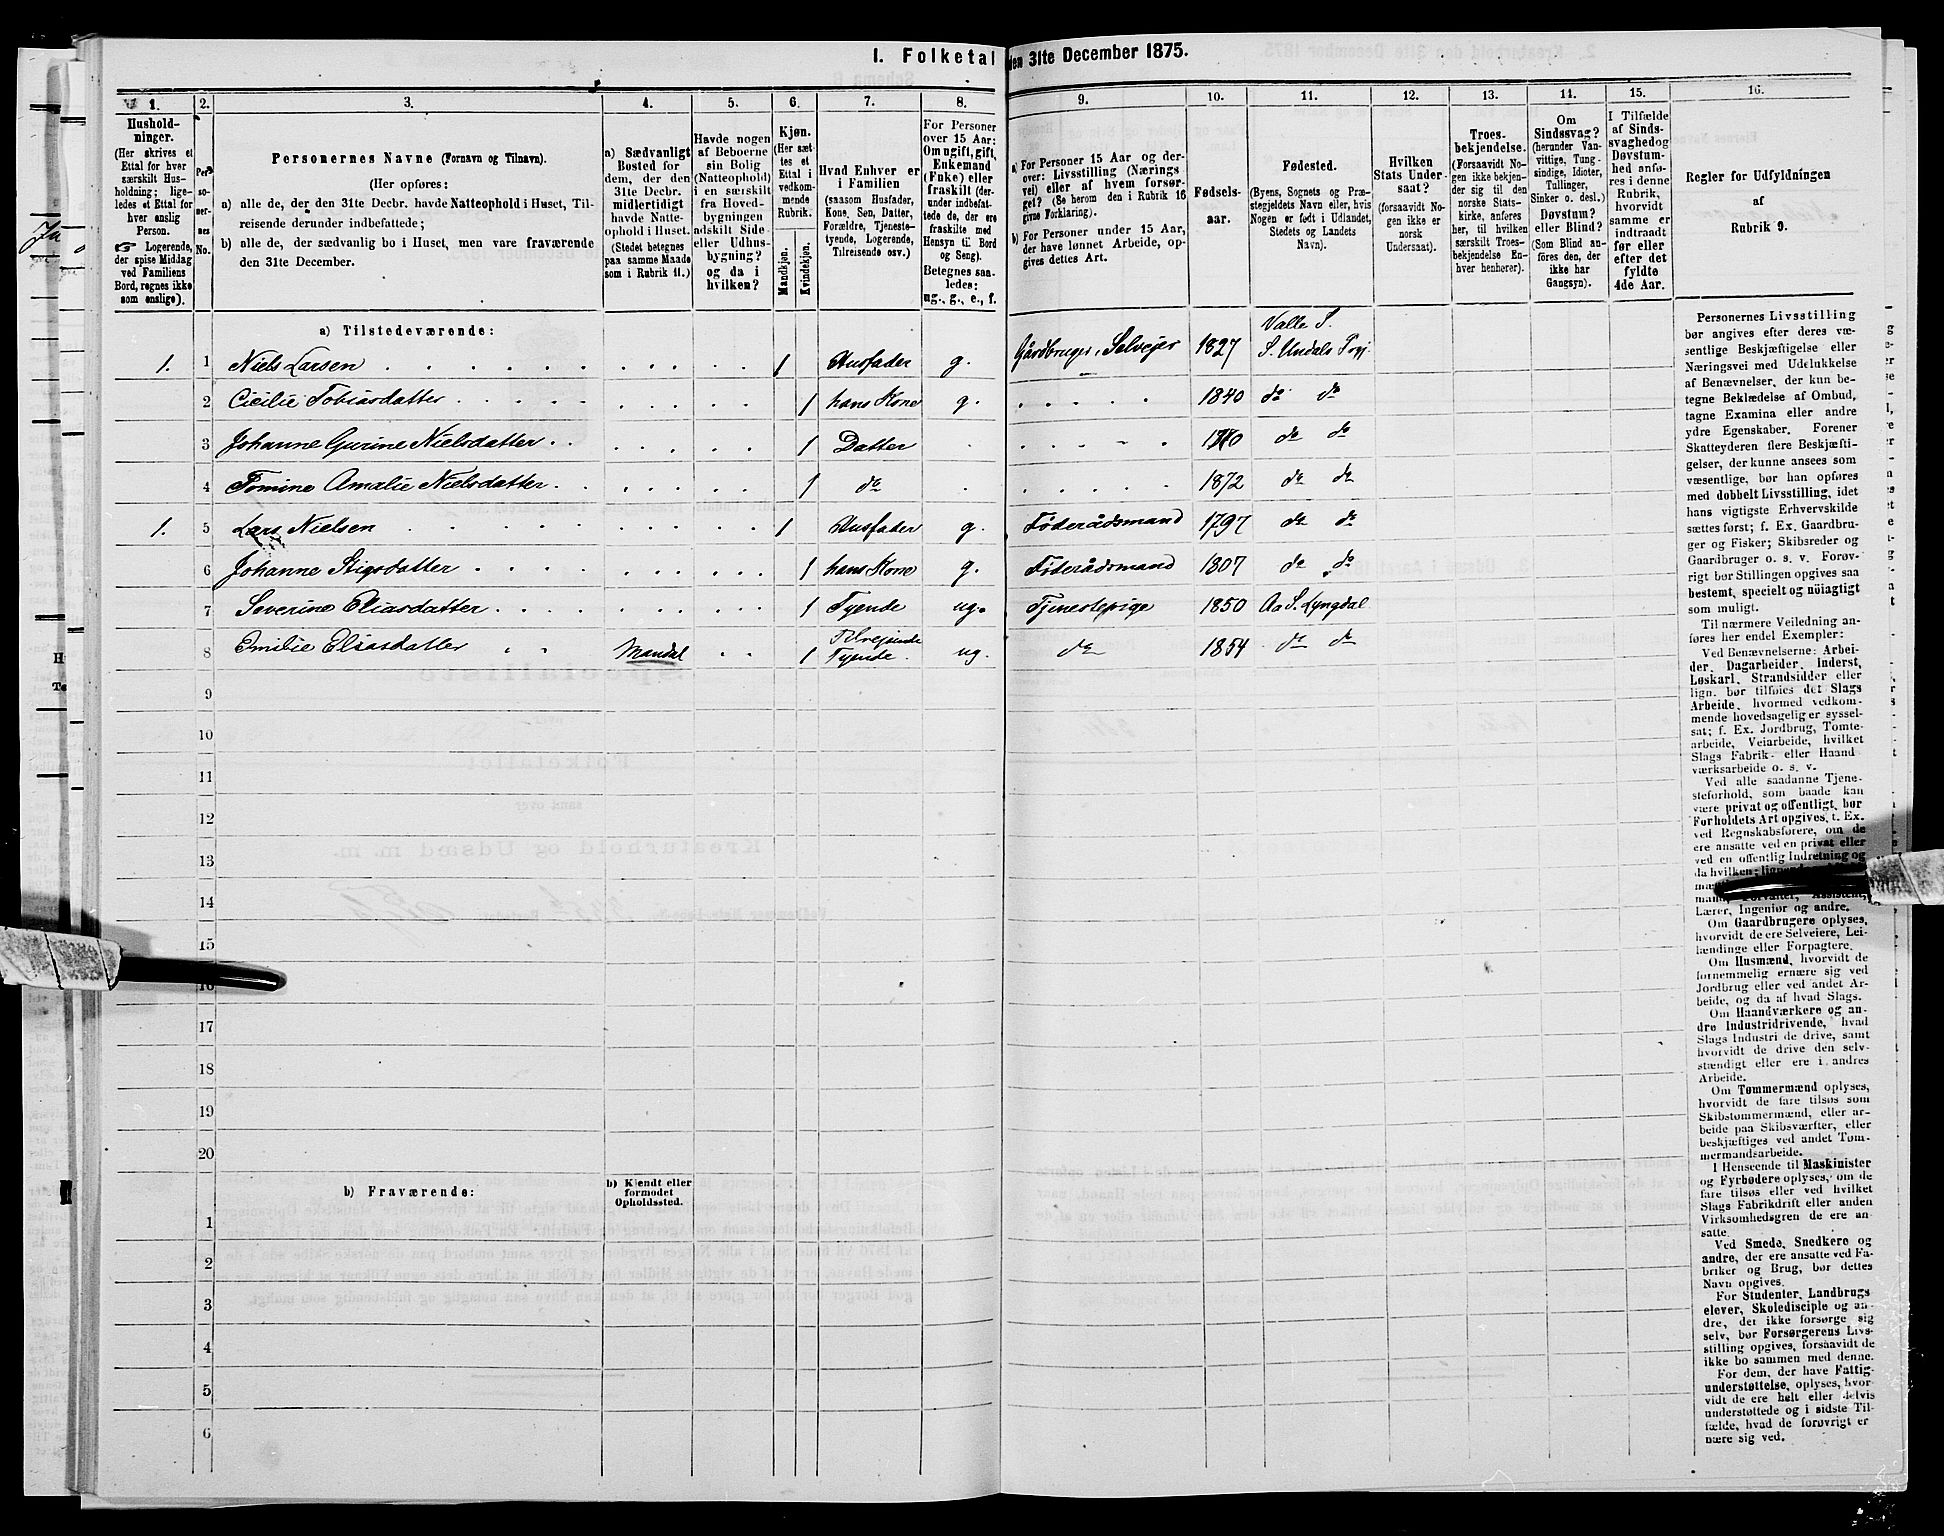 1. Folketal den 31te December 1875.
1. 2. 3. 4. 5. 6. 7. 8. 9. 10. 11. 12. 13. 14. 15. 16.
Hushold-
ninger.
(Her skrives et
Ettal for hver
særskilt Hus-
holdning; lige-
ledes et Ettal for
hver enslig
Person.
☞ Logerende,
der spise Middag
ved Familiens
Bord, regnes ikke
som enslige).
Per-
so-
ner-
nes
No.
Personernes Navne (Fornavn og Tilnavn).
(Her opføres:
a) alle de, der den 31te Decbr. havde Natteophold i Huset, Til-
reisende derunder indbefattede;
b) alle de, der sædvanlig bo i Huset, men vare fraværende
den 31te December.
a) Sædvanligt
Bosted for
dem, der den
31te Decbr.
midlertidigt
havde Natte-
ophold i Huset.
(Stedet betegnes
paa samme Maade
som i Rubrik 11.)
Havde nogen
af Beboerne
sin Bolig
(Natteophold)
i en særskilt
fra Hoved-
bygningen
adskilt Side-
eller Udhus-
bygning?
og da i
hvilken?
Kjøn.
(Her sæt-
tes et
Ettal i
vedkom-
mende
Rubrik.
Mandkjøn.
Kvindekjøn.
Hvad Enhver er
i Familien
(saasom Husfader,
Kone, Søn, Datter,
Forældre, Tjeneste-
tyende, Logerende,
Tilreisende osv.)
For Personer
over 15 Aar:
Om ugift, gift,
Enkemand
(Enke) eller
fraskilt (der-
under indbefat-
tede de, der ere
fraskilte med
Hensyn til Bord
og Seng).
Betegnes saa-
ledes:
ug., g., e., f.
a) For Personer 15 Aar og der-
over: Livsstilling (Nærings
vei) eller af hvem forsør-
get? (Se herom den i Rubrik 16
givne Forklaring).
b) For Personer under 15 Aar,
der have lønnet Arbeide, op-
gives dettes Art.
Fødsels-
aar.
Fødested.
(Byens, Sognets og Præ-
stegjeldets Navn eller, hvis
Nogen er født i Udlandet,
Stedets og Landets
Navn).
Hvilken
Stats Under-
saat?
(forsaavidt No-
gen ikke er
norsk
Undersaat).
Troes-
bekjendelse.
(Forsaavidt No-
gen ikke bekjen-
der sig til den
norske Stats-
kirke, anføres
her, til hvilken
særskilt Troes-
bekjendelse En-
hver henhører).
Om
Sindssvag?
(herunder Van-
vittige, Tung-
sindige, Idioter,
Tullinger,
Sinker o. desl.)
Døvstum?
eller Blind?
(Som Blind an-
føres den, der
ikke har
Gangsyn).
I Tilfælde
af Sinds-
svaghed og
Døvstum-
hed anfø-
res i denne
Rubrik,
hvorvidt
samme er
indtraadt
før eller
efter det
fyldte
4de Aar.
Regler for Udfyldningen
af
Rubrik 9.
a) Tilstedeværende:
1. 1 Niels Larsen 1 Husfader g. Gårdbruger, Selveier 1827 Valle S.
S. Undals Prgj.
2 Cicilie Tobiasdatter 1 hans Kone g. 1840 do do
3 Johanne Gurine Nielsdatter 1 Datter do do
4 Tomine Amalie Nielsdatter 1 do 1872 do do
1. 5 Lars Nielsen 1 Husfader g. Føderådsmand 1797 do do
6 Johanne Stigsdatter 1 hans Kone g. Føderådsmand 1807 do do
7 Severine Eliasdatter 1 Tyende ug. Tjenestepige 1850 Aa S. Lyngdal
8 Emilie Eliasdatter Mandal 1 Tilreisende
Tyende ug. do 1854 do do
9
10
11
12
13
14
15
16
17
18
19
20
b) Fraværende:
b) Kjendt eller
formodet
Opholdssted.
1
2
3
4
5
6
Personernes Livsstilling
bør angives efter deres væ-
sentlige Beskjæftigelse eller
Næringsvei med Udelukkelse
af Benævnelser, der kun be-
tegne Beklædelse af Ombud,
tagne Examina eller andre
ydre Egenskaber. Forener
Skatteyderen flere Beskjæfti-
gelser, der kunne ansees som
væsentlige, bør han opføres
med dobbelt Livsstilling, idet
hans vigtigste Erhvervskilde
sættes først; f. Ex. Gaardbru-
ger og Fisker; Skibsreder og
Gaardbruger o. s. v. Forøv-
rigt bør Stillingen opgives saa
bestemt, specielt og nöiagtigt
som muligt.
Til nærmere Veiledning an-
føres her endel Exempler:
Ved Benævnelserne: Arbei-
der, Dagarbeider, Inderst,
Løskarl, Strandsidder eller
lign. bør tilføies det Slags
Arbeide, hvormed vedkom-
mende hovedsagelig er syssel-
sat; f. Ex. Jordbrug, Tomte-
arbeide, Veiarbeide, hvilket
Slags Fabrik- eller Haand
værksarbeide o. s. v.
Ved alle saadanne Tjene-
steforhold, som baade kan
være privat og offentligt, bør
Forholdets Art opgives, t. Ex.
ved Regnskabsførere, om de
ere ansatte ved en privat eller
ved en offentlig Indretning og
da hvilken;
Forvalter, Assistent,
Lærer, Ingeniør og andre.
Om Gaardbrugere oplyses,
hvorvidt de ere Selveiere, Lei-
lændinge eller Forpagtere.
Om Husmænd, hvorvidt de
fornemmelig ernære sig ved
Jordbrug eller ved andet Ar-
beide, og da af hvad Slags.
Om Haandværkere og an-
dre Industridrivende, hvad
Slags Industri de drive, samt
hvorvidt de drive den selv-
stændigt eller ere i andres
Arbeide.
Om Tømmermænd oplyses,
hvorvidt de fare tilsøs som
Skibstømmermænd, eller ar-
beide paa Skibsværfter, eller
beskjæftiges ved andet Tøm-
mermandsarbeide.
I Henseende til Maskinister
og Fyrbødere oplyses, om de
fare tilsøs eller ved hvilket
Slags Fabrikdrift eller anden
Virksomhedsgren de ere an-
satte.
Ved Smede, Snedkere og
andre, der ere ansatte ved Fa-
briker og Brug, bør dettes
Navn opgives.
For Studenter, Landbrugs
elever, Skoledisciple og an-
dre, det ikke forsørge sig
selv, bør Forsørgerens Livs-
stilling opgives, forsaavidt de
ikke bo sammen med denne.
For dem, der have Fattig-
understøttelse, oplyses, hvor-
vidt de ere helt eller delvis
understøttede og i sidste Til-
fælde, hvad de forøvrigt er
nære sig ved.